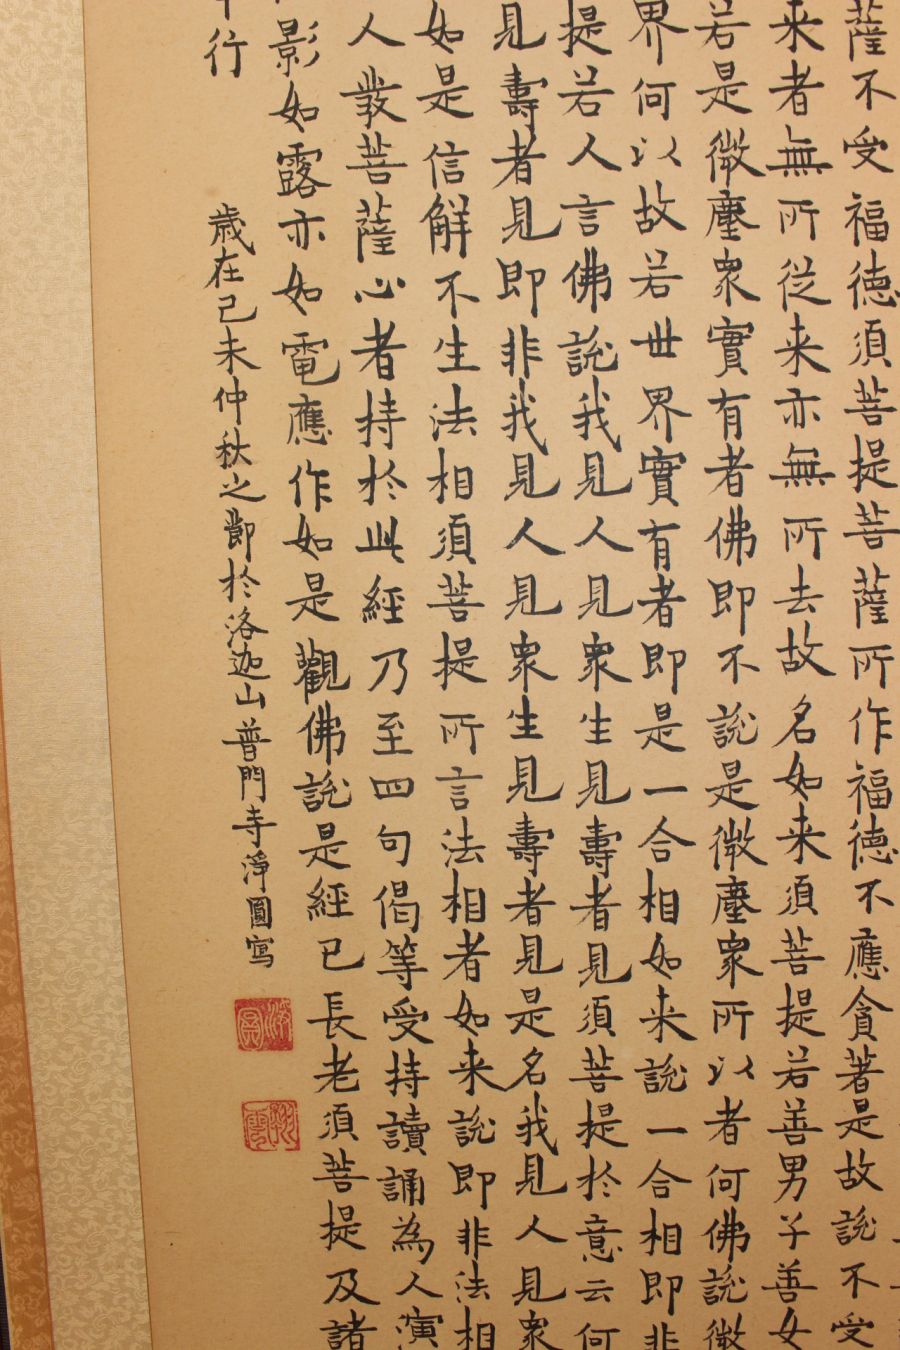 薩不受福德須菩提菩薩所作福德不應貪著是故說不受
来者無所従来亦無所去故名如来須菩提若善男子善女
若是微塵衆實有者佛即不說是微塵衆所以者何佛說微
界何以故若世界實有者即是一合相如来說一合相即非
提若人言佛說我見人見衆生見壽者見須菩提於意云何
見壽者見即非我見人見衆生見壽者見是名我見人見衆
如是信解不生法相須菩提所言法相者如来說即非法相
人發菩薩心者持於此經乃至四句偈等受持讀誦為人演
影如露亦如電應作如是觀佛說是經已長老須菩提及諸
行
歲在己未仲秋之節於洛迦山普門寺淨圓寫